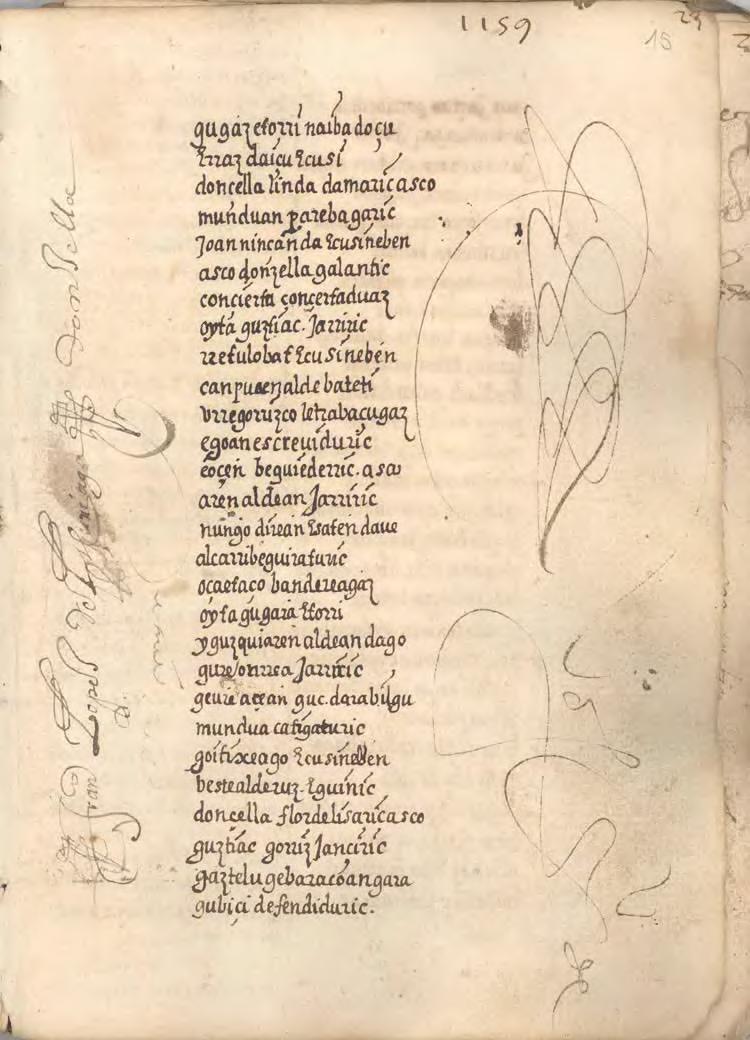 1159
23
15
gugaz etorri naibadoçu
Erraz daiçu Ecusi
doncella linda damaric asco
munduan parebagaric
Joannincan da Ecusineben
asco donzella galantic
concierta concertaduaz
oyta guztiac. Jarriric
rretulobat Ecusineben
canpuaen alde bateti
vrregorrizco letrabaçugaz
egoan escreuiduric
eocen beguiederric. asco
aren aldean Jarriric
nungo direan Esaten daue
alcarri beguiraturic
ocaetaco bandereagaz
oyta gugara Etorri
yguzquiaren aldean dago
gure onrrea Jarriric
geure açean guc. darabilgu
mundua catigaturic
goitixeago Ecusineben
bestealderuz. Eguinic
doncella flordelisaric asco
guztiac gorriz Janciric
gaztelugebaracoangara
gubici defendiduric.
fran Lopes de
donsella